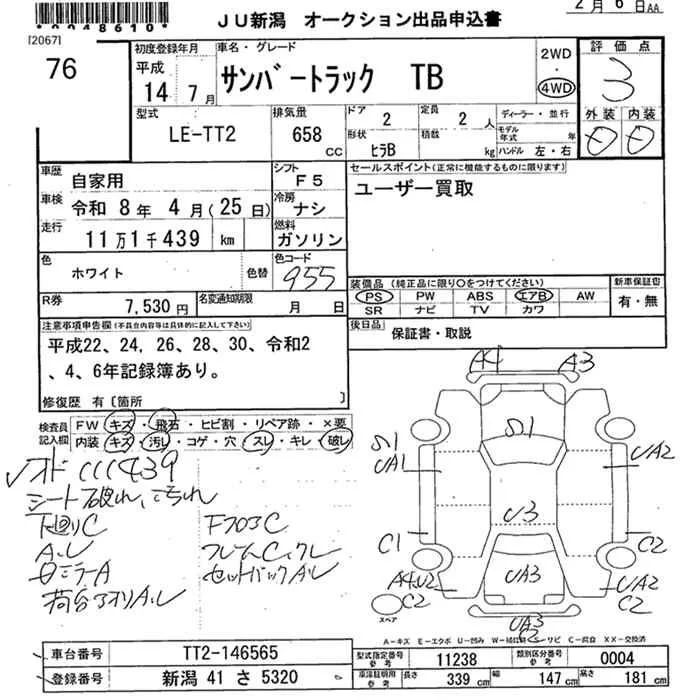 *0048610*
2月 6日AA
[2067]
JU新潟 オークション出品申込書
76
初度登録年月
平成
14 7月
車名・グレード
サンバートラック TB
2WD
・
4WD
評価点
3
型式
LE-TT2
排気量
658
CC
ドア
2
形状
ヒラB
定員
2 人
積数
kg
ディーラー・並行
モデル年式 年
ハンドル 左・右
外装 内装
D D
車歴
自家用
シフト
F5
セールスポイント(正常に機能するものに限ります)
ユーザー買取
車検
令和 8年 4月(25日)
冷房
ナシ
走行
11万1千439 km
燃料
ガソリン
色
ホワイト
色替
色コード
955
装備品 (純正品に限り○をつけてください)
PS PW ABS エアB AW
SR ナビ TV カワ
新車保証書
有・無
R券
7,530円
名変通知期限
月 日
後日品
保証書・取説
注意事項申告欄(不具合内容等は具体的に記入して下さい)
平成22、24、26、28、30、令和2
、4、6年記録簿あり。
修復歴 有〔箇所 〕
検査員
記入欄
FW キズ・飛石・ヒビ割・リペア跡・×要
内装 キズ・汚レ・コゲ・穴・スレ・キレ・破レ
シート破れ、こすれ
下廻りC
AL
フレームC
A4 A3
S1
S1
UA1
UA2
U3
C1
C2
UA3
A4.U2
C2
UA2
C2
UA3
スペア
A-キズ E-エクボ U-凹み W-補修跡 S-サビ C-腐食 XX-交換済
車台番号
TT2-146565
型式指定番号
参考
11238
類別区分番号
参考
0004
登録番号
新潟 41 さ 5320
車決証明用
参考
長さ
339 cm
幅
147 cm
高さ
181 cm